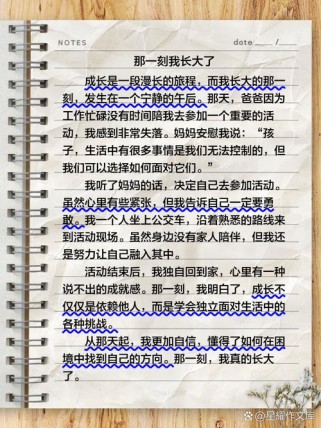 NOTES
date ___ /___
那一刻我长大了
成长是一段漫长的旅程，而我长大的那一
刻，发生在一个宁静的午后。那天，爸爸因为
工作忙碌没有时间陪我去参加一个重要的活
动，我感到非常失落。妈妈安慰我说：“孩
子，生活中有很多事情是我们无法控制的，但
我们可以选择如何面对它们。”
我听了妈妈的话，决定自己去参加活动。
虽然心里有些紧张，但我告诉自己一定要勇
敢。我一个人坐上公交车，沿着熟悉的路线来
到活动现场。虽然身边没有家人陪伴，但我还
是努力让自己融入其中。
活动结束后，我独自回到家，心里有一种
说不出的成就感。那一刻，我明白，成长不
仅仅是依赖他人，而是学会独立面对生活中的
各种挑战。
从那天起，我更加自信，懂得了如何在困
境中找到自己的方向。那一刻，我真的长大
了。
@星耀作文库